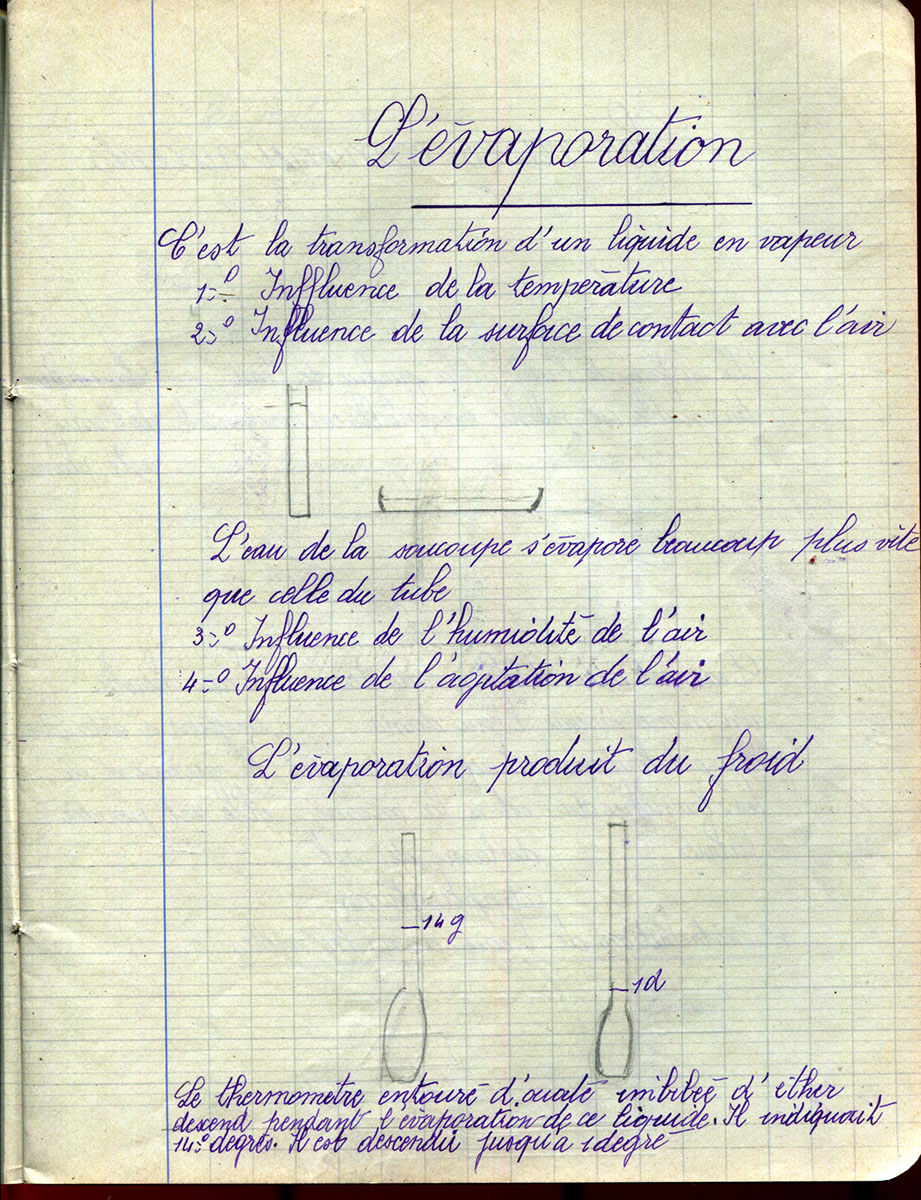 L'évaporation
C'est la transformation d'un liquide en vapeur
1-º Inffluence de la température
2-º Influence de la surface de contact avec l'air
L'eau de la soucoupe s'évapore beaucoup plus vite
que celle du tube
3-º Influence de l'humidité de l'air
4-º Influence de l'agitation de l'air
L'évaporation produit du froid
14 g
1d
Le thermomètre entouré d'ouate imbibée d'éther
descend pendant l'évaporation de ce liquide. Il indiquait
14º degrés. Il est descendu jusqu'à 1 degré